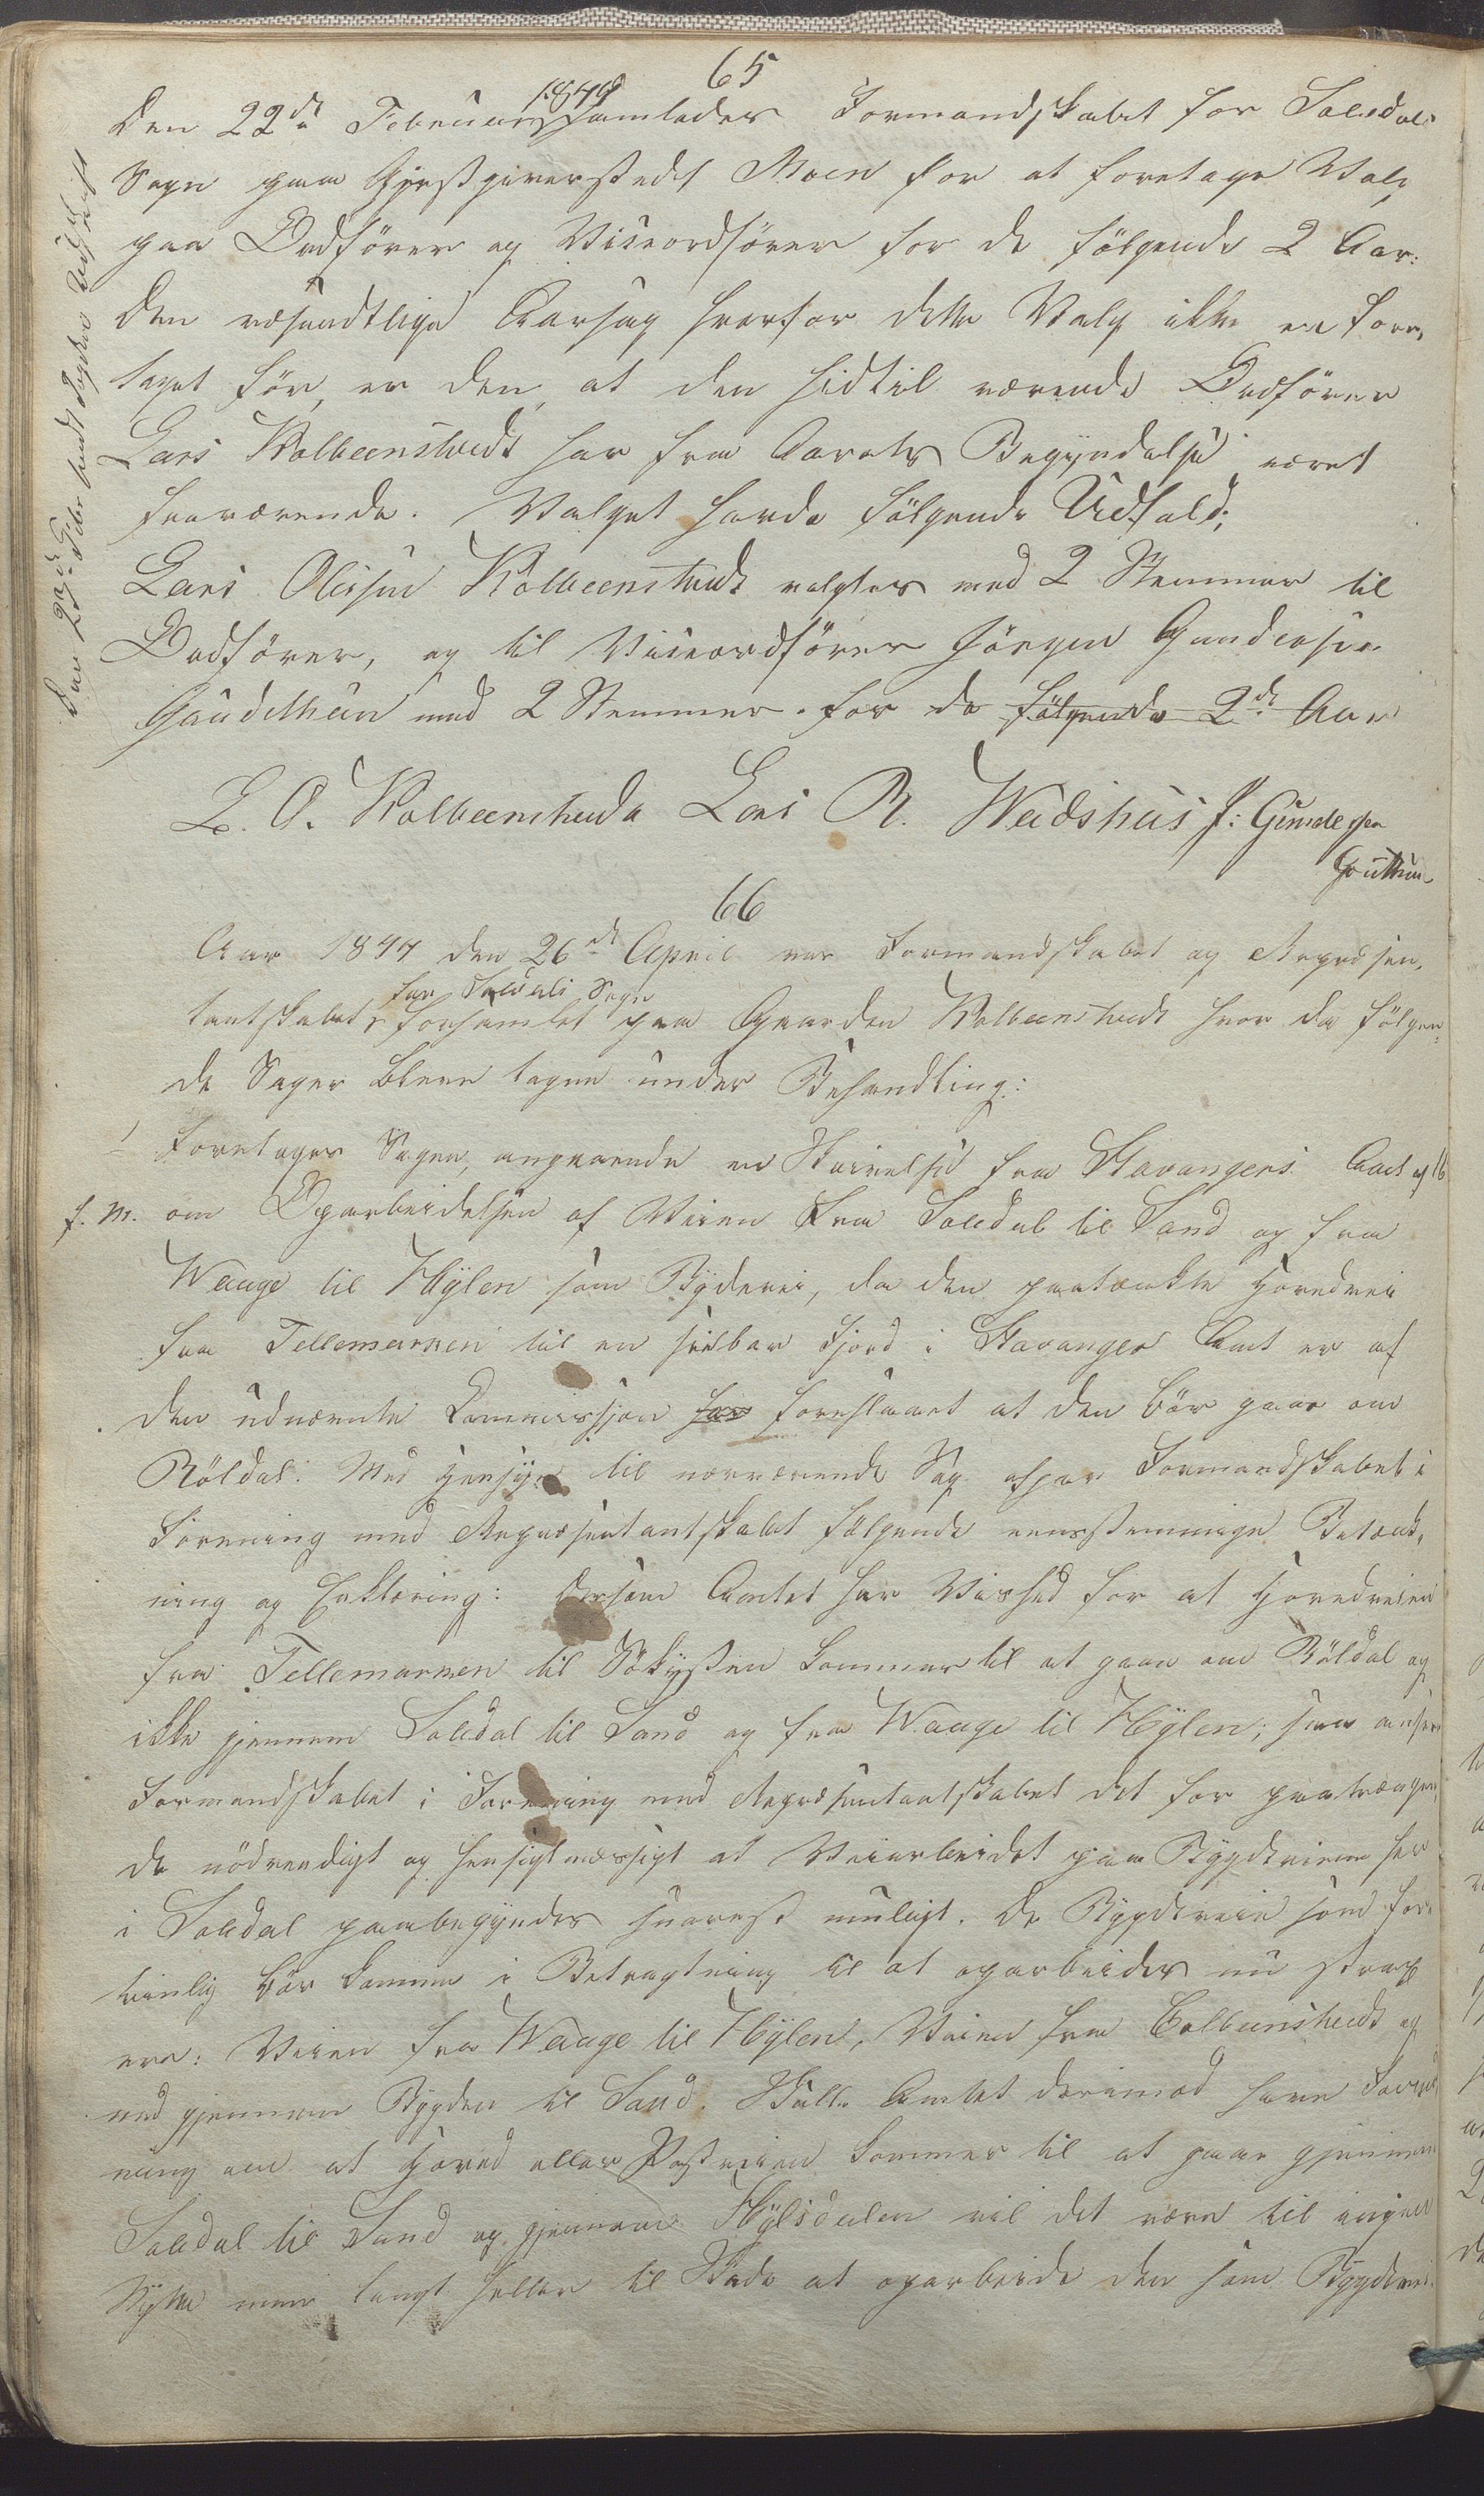 65
Den 22de Februar 1844 samledes Formandskabet for Suledals
Sogn paa Gjestgiverstedet Moen for at foretage Valg
paa Ordfører og Viceordfører for de følgende 2 Aar:
Den væsendtlige Aarsag hvorfor dette Valg ikke er fore,
taget før, er den, at den hidtil værende Ordfører
Lars Kolbeenstvedt har fra Aarets Begyndelse været
fraværende. Valget havde følgende Udfald;
Lars Olesen Kolbeenstvedt valgtes med 2 Stemmer til
Ordfører, og til Viceordfører Jörgen Gundersen
Gaudethun med 2 Stemmer. for de følgende 2de Aar
L. O. Kolbeenstveda Lars R. Weeshus J: Gundersen
Guthun
Den 22de Febr sendt Fogden Udskrift
66
Aar 1844 den 26de April var Formandskabet og Repræsen,
tantskabet for Suledals Sogn forsamlet paa Gaarden Kolbeenstvedt hvor da følgen,
de Sager bleve tagne under Behandling:
1 Foretages Sagen, angaaende en Skrivelse fra Stavangers Amt af 16
f. M. om Oparbeidelsen af Veien fra Suledal til Sand og fra
Waage til Hylen som Bydevei, da den paatænkte Hovedvei
fra Tellemarken til en seilbar Fjord i Stavanger Amt er af
den udnævnte Commission har foreslaaet at den bør gaae om
Röldal. Med Hensyn til nærværende Sag afgav Formandskabet i
Forening med Repræsentantskabet følgende eenstemmige Betænk,
ning og Erklæring: Dersom Amtet har Vished for at Hovedveien
fra Tellemarken til Søkysten kommer til at gaae om Röldal og
ikke gjennem Suledal til Sand og fra Waage til Hylen; saa anseer
Formandskabet i Forening med Repræsentantskabet det for paatrængen,
de nødvendigt og hensigtmæssigt at Veiarbeidet paa Bygdeveiene her
i Suledal paabegyndes snarest muligt. De Bygdeveie som for,
trinlig bør komme i Betragtning til at oparbeides nu strax
ere: Veien fra Waage til Hylen, Veien fra Colbeenstvedt og
ned gjennem Bygden til Sand. Skulle Amtet derimod have Formod
ning om at Hoved eller Postveien kommer til at gaae gjennem
Suledal til Sand og gjennem Hylsdalen vil det være til ingen
Nytte men langt heller til Skade at oparbeide den som Bygdevei.